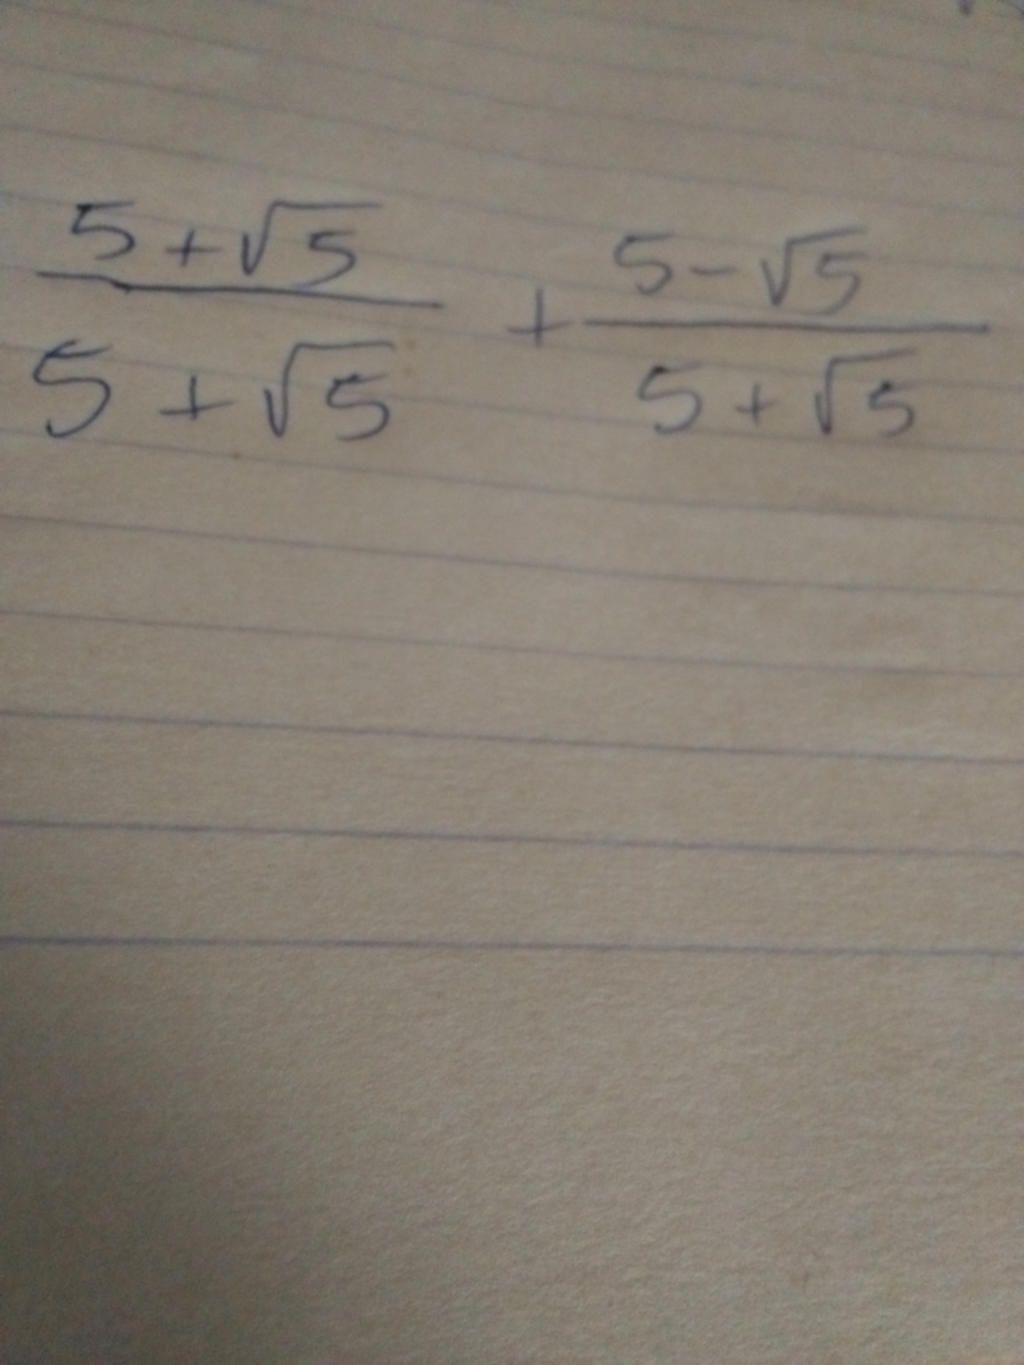 5 + √5 / 5 + √5 + 5 - √5 / 5 + √5